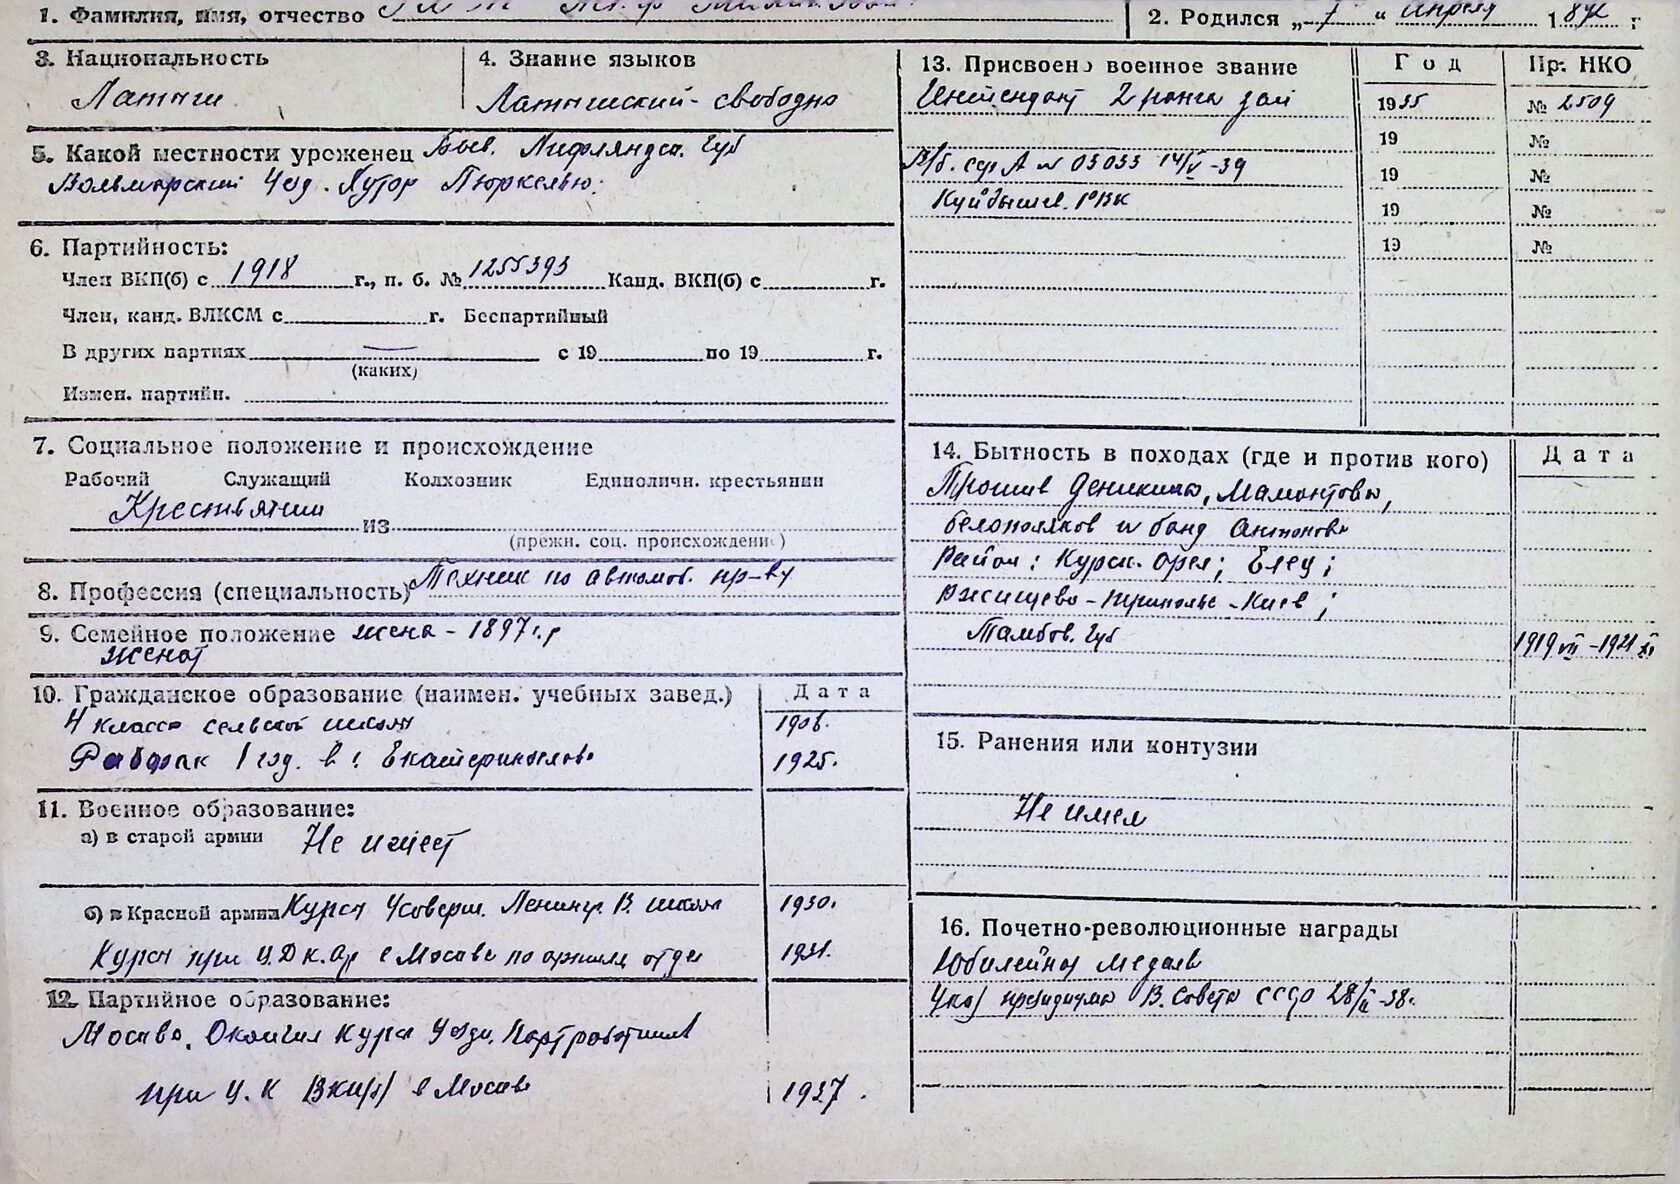 1. Фамилия, имя, отчество
2. Родился „ 7 “ апреля 18 г
3. Национальность
Латыш
4. Знание языков
Латышский - свободно
5. Какой местности уроженец Быв. Лифляндск. Губ
Вольмарский Уезд. Хутор
6. Партийность:
Член ВКП(б) с 1918 г., п. б. № 1255393 Канд. ВКП(б) с г.
Член, канд. ВЛКСМ с г. Беспартийный
В других партиях — с 19 по 19 г.
(каких)
Измен. партийн.
7. Социальное положение и происхождение
Рабочий Служащий Колхозник Единоличн. крестьянин
Крестьянин из
(прежн. соц. происхождение)
8. Профессия (специальность) Техник по автомоб. пр-ву
9. Семейное положение жена - 1897 г.р
женат
10. Гражданское образование (наимен. учебных завед.) Дата
4 класса сельской школы 1908.
Рабфак 1 год. в г. Екатеринослове 1925.
11. Военное образование:
а) в старой армии Не имеет
б) в Красной армии Курсы Усоверш. Ленингр. В. школы 1930.
Курсы при Ц.Д К. Ар в Москве по 1931.
12. Партийное образование:
Москва. Окончил Курсы Уезди. Партработников
при Ц. К ВКП(б) в Москве 1937.
13. Присвоено военное звание Год Пр. НКО
Интендант 2 ранга зап 1935 № 2509
19 №
В/б. сер А № 03033 14/V -39 19 №
Куйбышев. РВК 19 №
19 №
14. Бытность в походах (где и против кого) Дата
Против Деникина, Мамонтова,
белополяков и банд Антонова
Район: Курск. Орел; Елец;
Ржищево - Триполье - Киев;
Тамбов. Губ 1919 VII - 1921 XI
15. Ранения или контузии
Не имел
16. Почетно-революционные награды
Юбилейная медаль
Указ президиума В. Совета СССР 28/II -38.